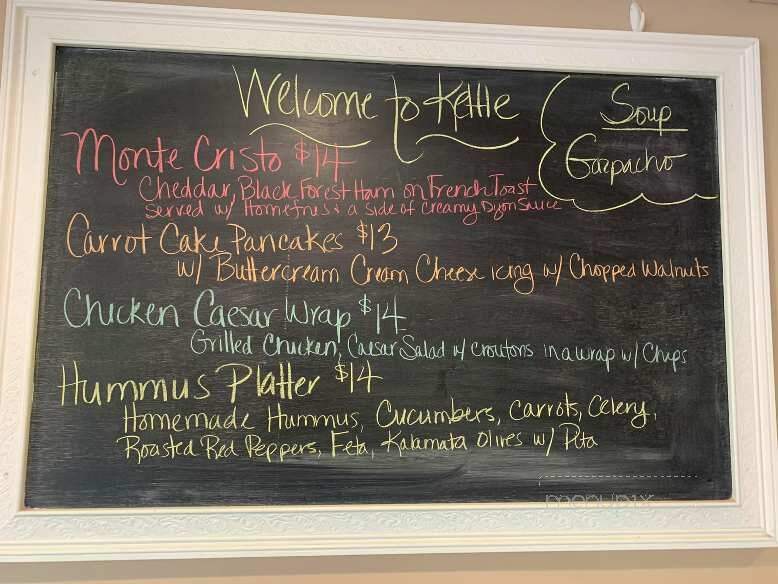 Welcome to Kettle
Soup
Gazpacho
Monte Cristo $14
Cheddar, Black Forest Ham on French Toast
Served w/ Homefries & a side of Creamy Dijon Sauce
Carrot Cake Pancakes $13
w/ Buttercream Cream Cheese icing w/ Chopped Walnuts
Chicken Caesar Wrap $14
Grilled Chicken, Caesar Salad w/ croutons in a wrap w/ Chips
Hummus Platter $14
Homemade Hummus, Cucumbers, Carrots, Celery,
Roasted Red Peppers, Feta, Kalamata Olives w/ Pita
menupix